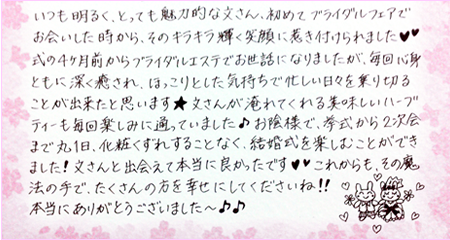 いつも明るく、とっても魅力的な文さん、初めてブライダルフェアで
お会いした時から、そのキラキラ輝く笑顔に惹き付けられました♥♥
式の4ヶ月前からブライダルエステでお世話になりましたが、毎回心身
ともに深く癒され、ほっこりとした気持ちで忙しい日々を乗り切る
ことが出来たと思います★文さんが淹れてくれる美味しいハーブ
ティーも毎回楽しみに通っていました♪お陰様で、挙式から2次会
まで丸1日、化粧くずれすることなく、結婚式を楽しむことができ
ました!文さんと出会えて本当に良かったです♥♥これからも、その魔
法の手で、たくさんの方を幸せにしてくださいね!!
本当にありがとうございました〜♪♪